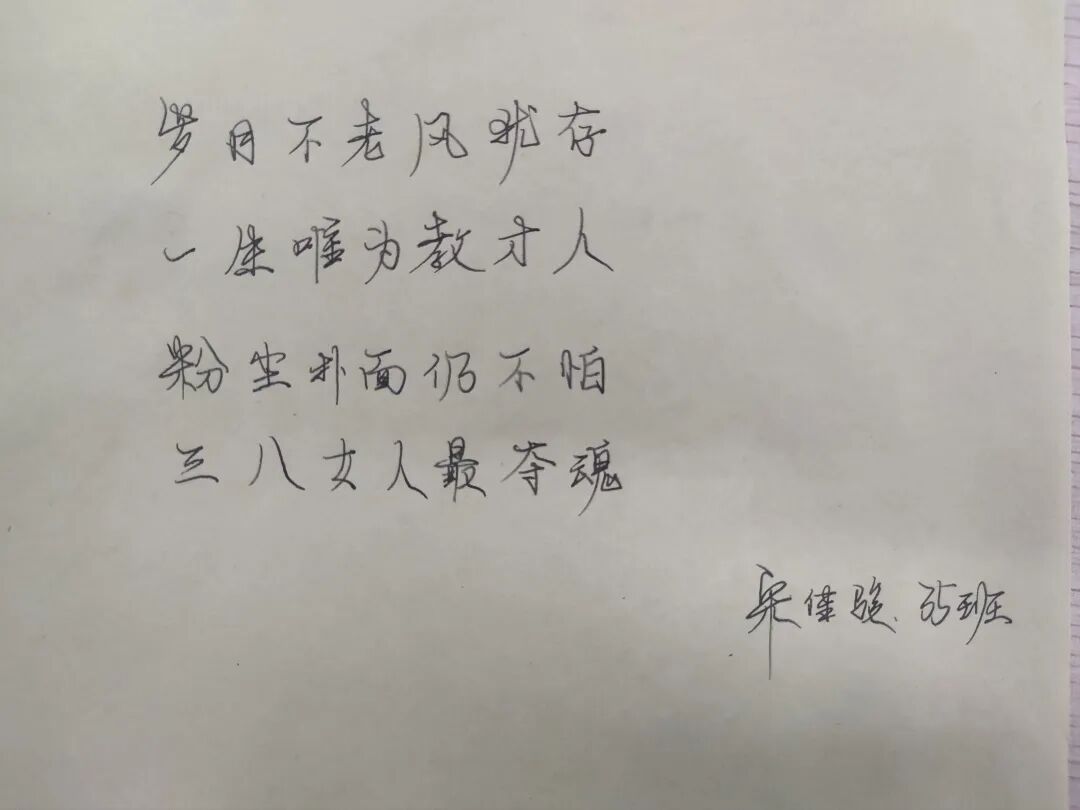 岁月不老风犹存
一生唯为教才人
粉尘扑面仍不怕
三八女人最夺魂
佳骏.35班